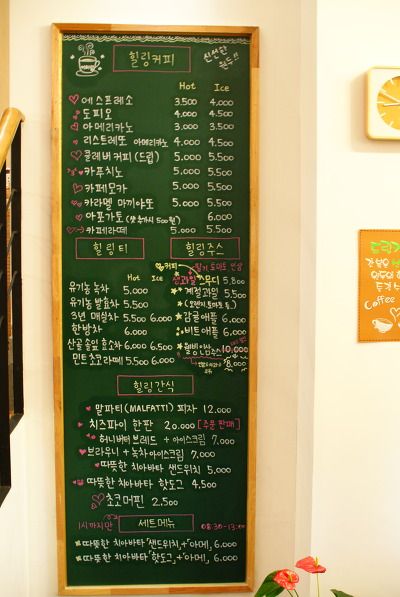 힐링커피
신선한
원두!!
Hot Ice
에스프레소 3.500 4.000
도피오 4.000 4.500
아메리카노 3.000 3.500
리스트레또 아메리카노 4.000 4.500
클레버 커피 (드립) 5.000 5.500
카푸치노 5.000 5.500
카페모카 5.000 5.500
카라멜 마끼야또 5.000 5.500
아포가토 6.000
카페라떼 5.000 5.500
힐링티
Hot Ice
유기농 녹차 5.000
유기농 발효차 5.500
3년 매실차 5.500 6.000
한방차 6.000
산골 솔잎 효소차 6.000 6.500
민트 초코라떼 5.500 6.000
힐링주스
커피
스무디 5.800
계절과일 5.500
감귤애플 6.000
비트애플 6.000
10.000
8.000
힐링간식
말파티(MALFATTI) 피자 12.000
치즈파이 한판 20.000 [주문 판매]
허니버터브레드 + 아이스크림 7.000
브라우니 + 녹차아이스크림 7.000
따뜻한 치아바타 샌드위치 5.000
따뜻한 치아바타 핫도그 4.500
초코머핀 2.500
1시까지만 세트메뉴 08:30-13:00
따뜻한 치아바타 '샌드위치'+'아메' 6.000
따뜻한 치아바타 '핫도그'+'아메' 6.000
Coffee